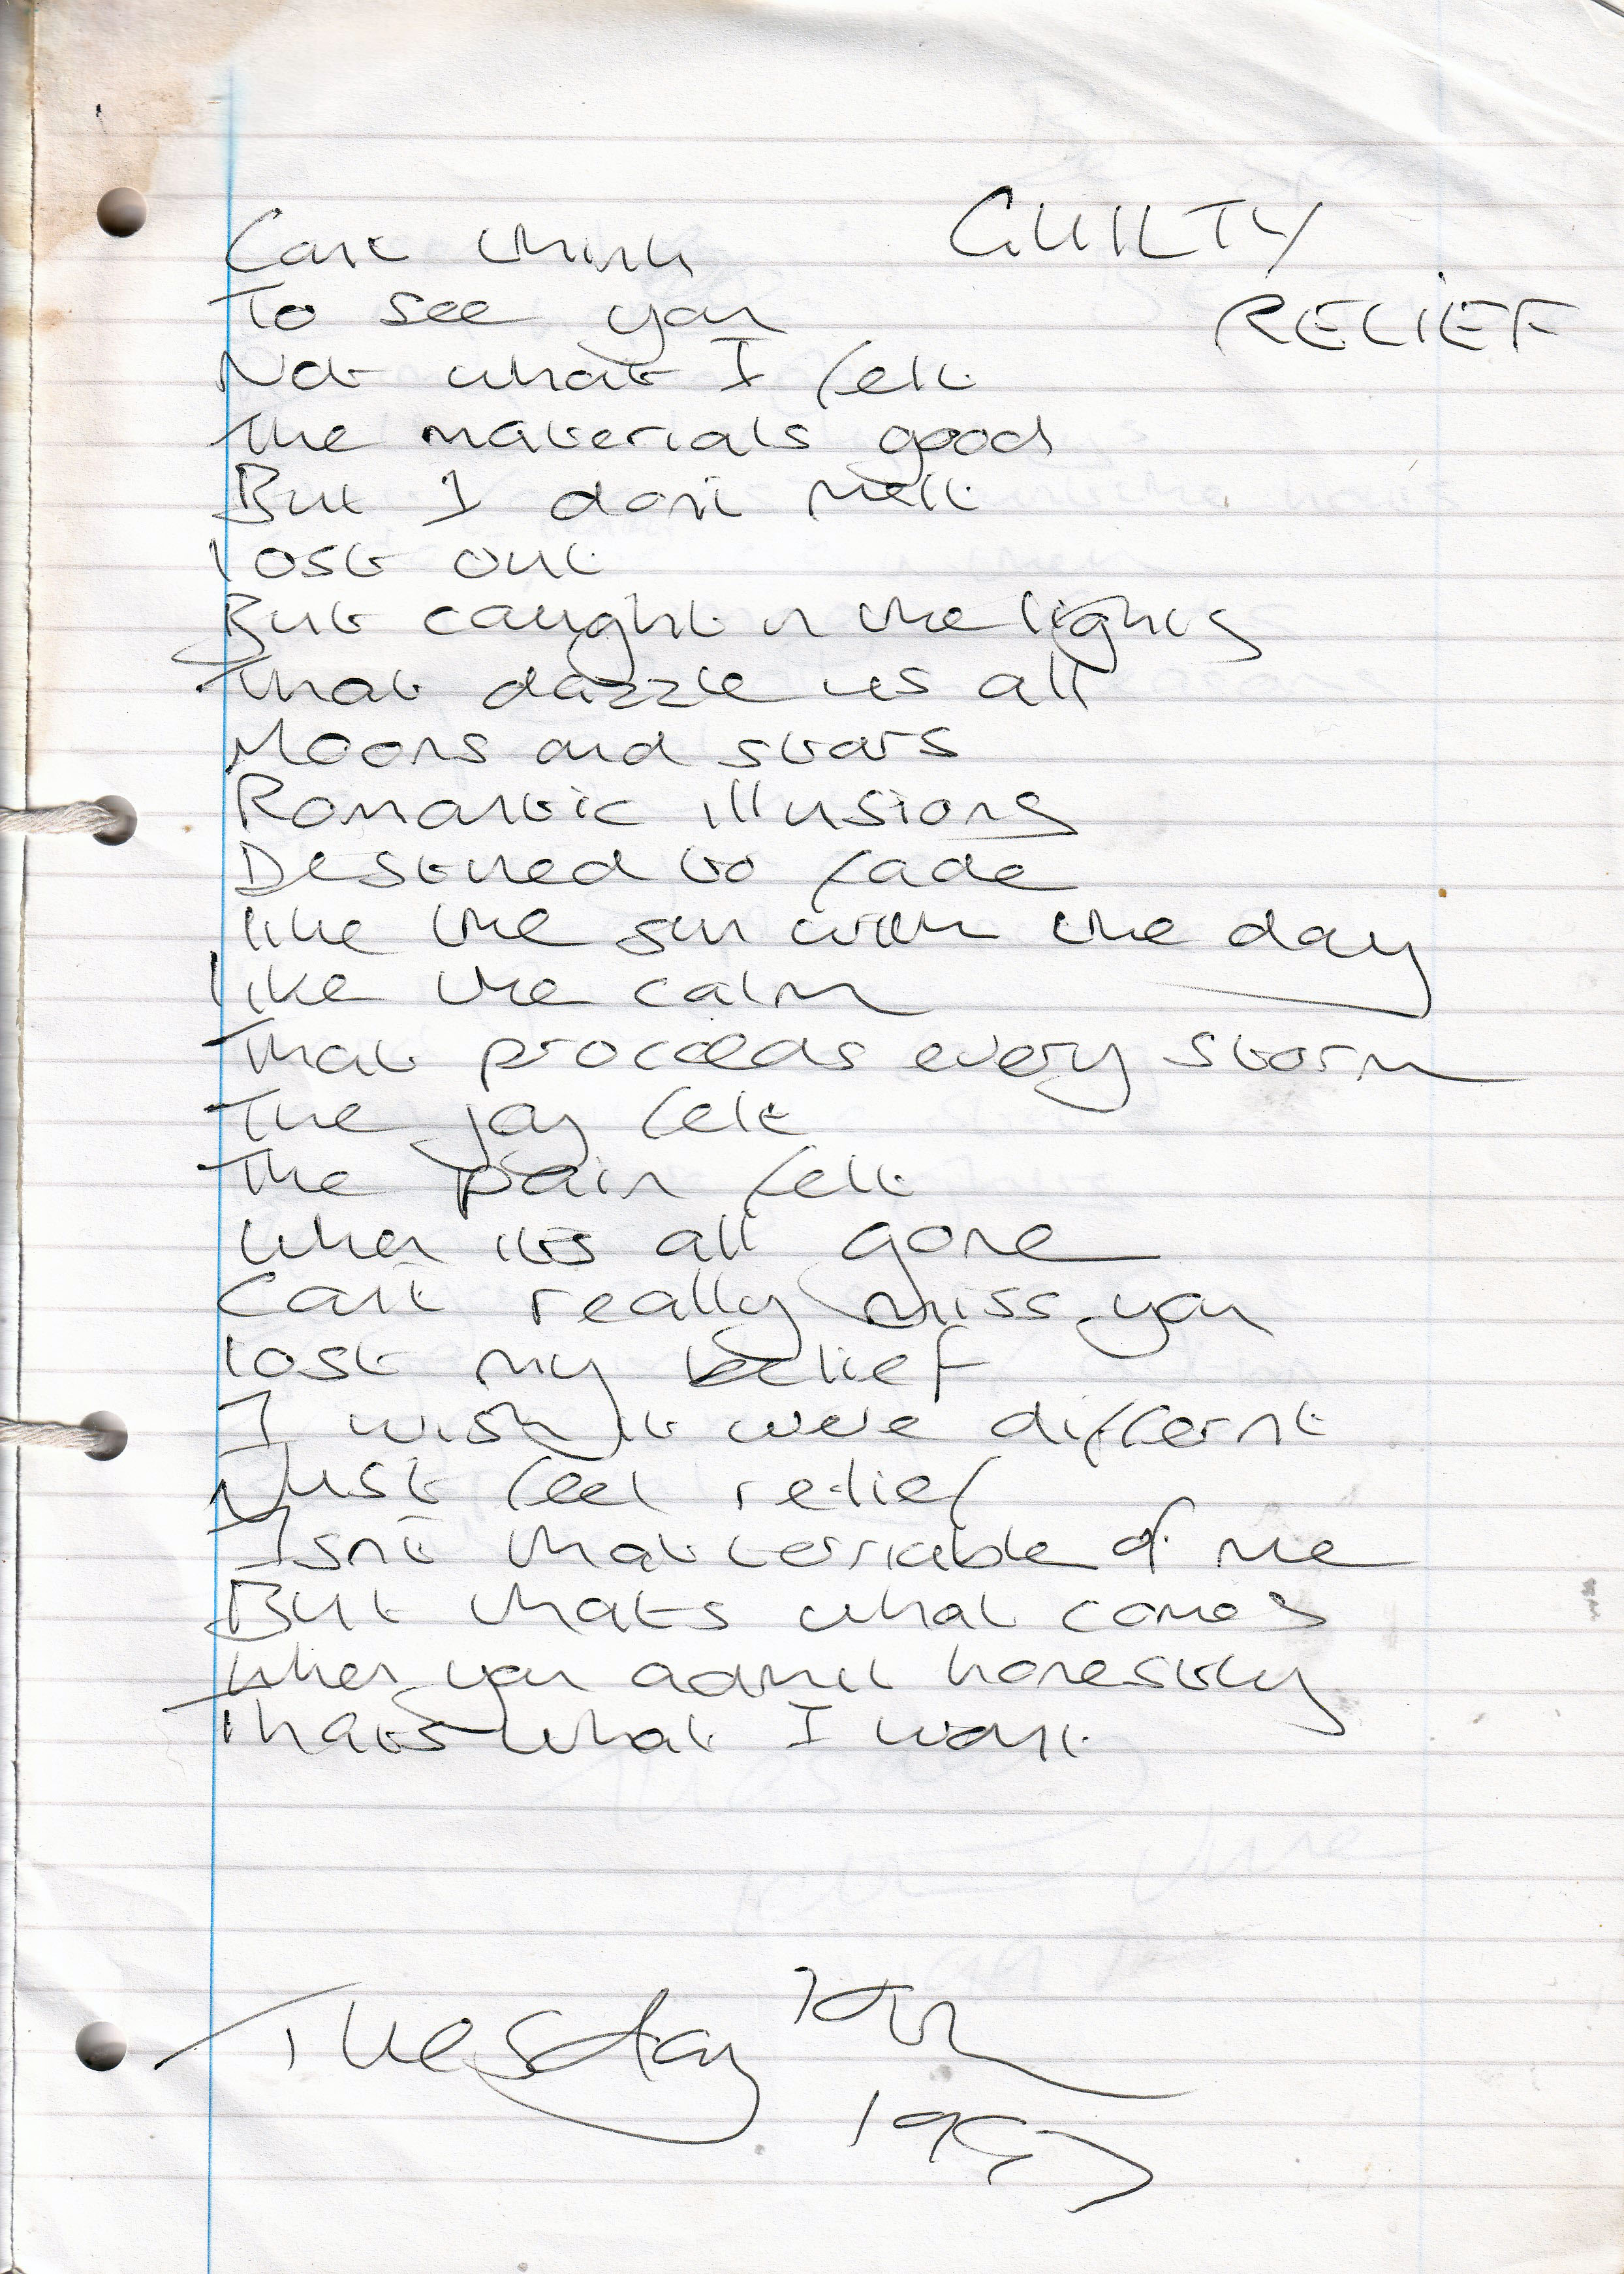 GUILTY
RELIEF
Cant think
To see you
Not what I felt
The materials good
But I don't melt
lost out
But caught in the lights
That dazzle us all
Moons and stars
Romantic illusions
Destined to fade
like the sun with the day
like the calm
That proceeds every storm
The joy felt
The pain felt
When its all gone
Can't really miss you
lost my belief
I wish it were different
Just feel relief
Isn't that terriable of me
But thats what comes
When you admit honestly
Thats what I want
Tuesday 10th